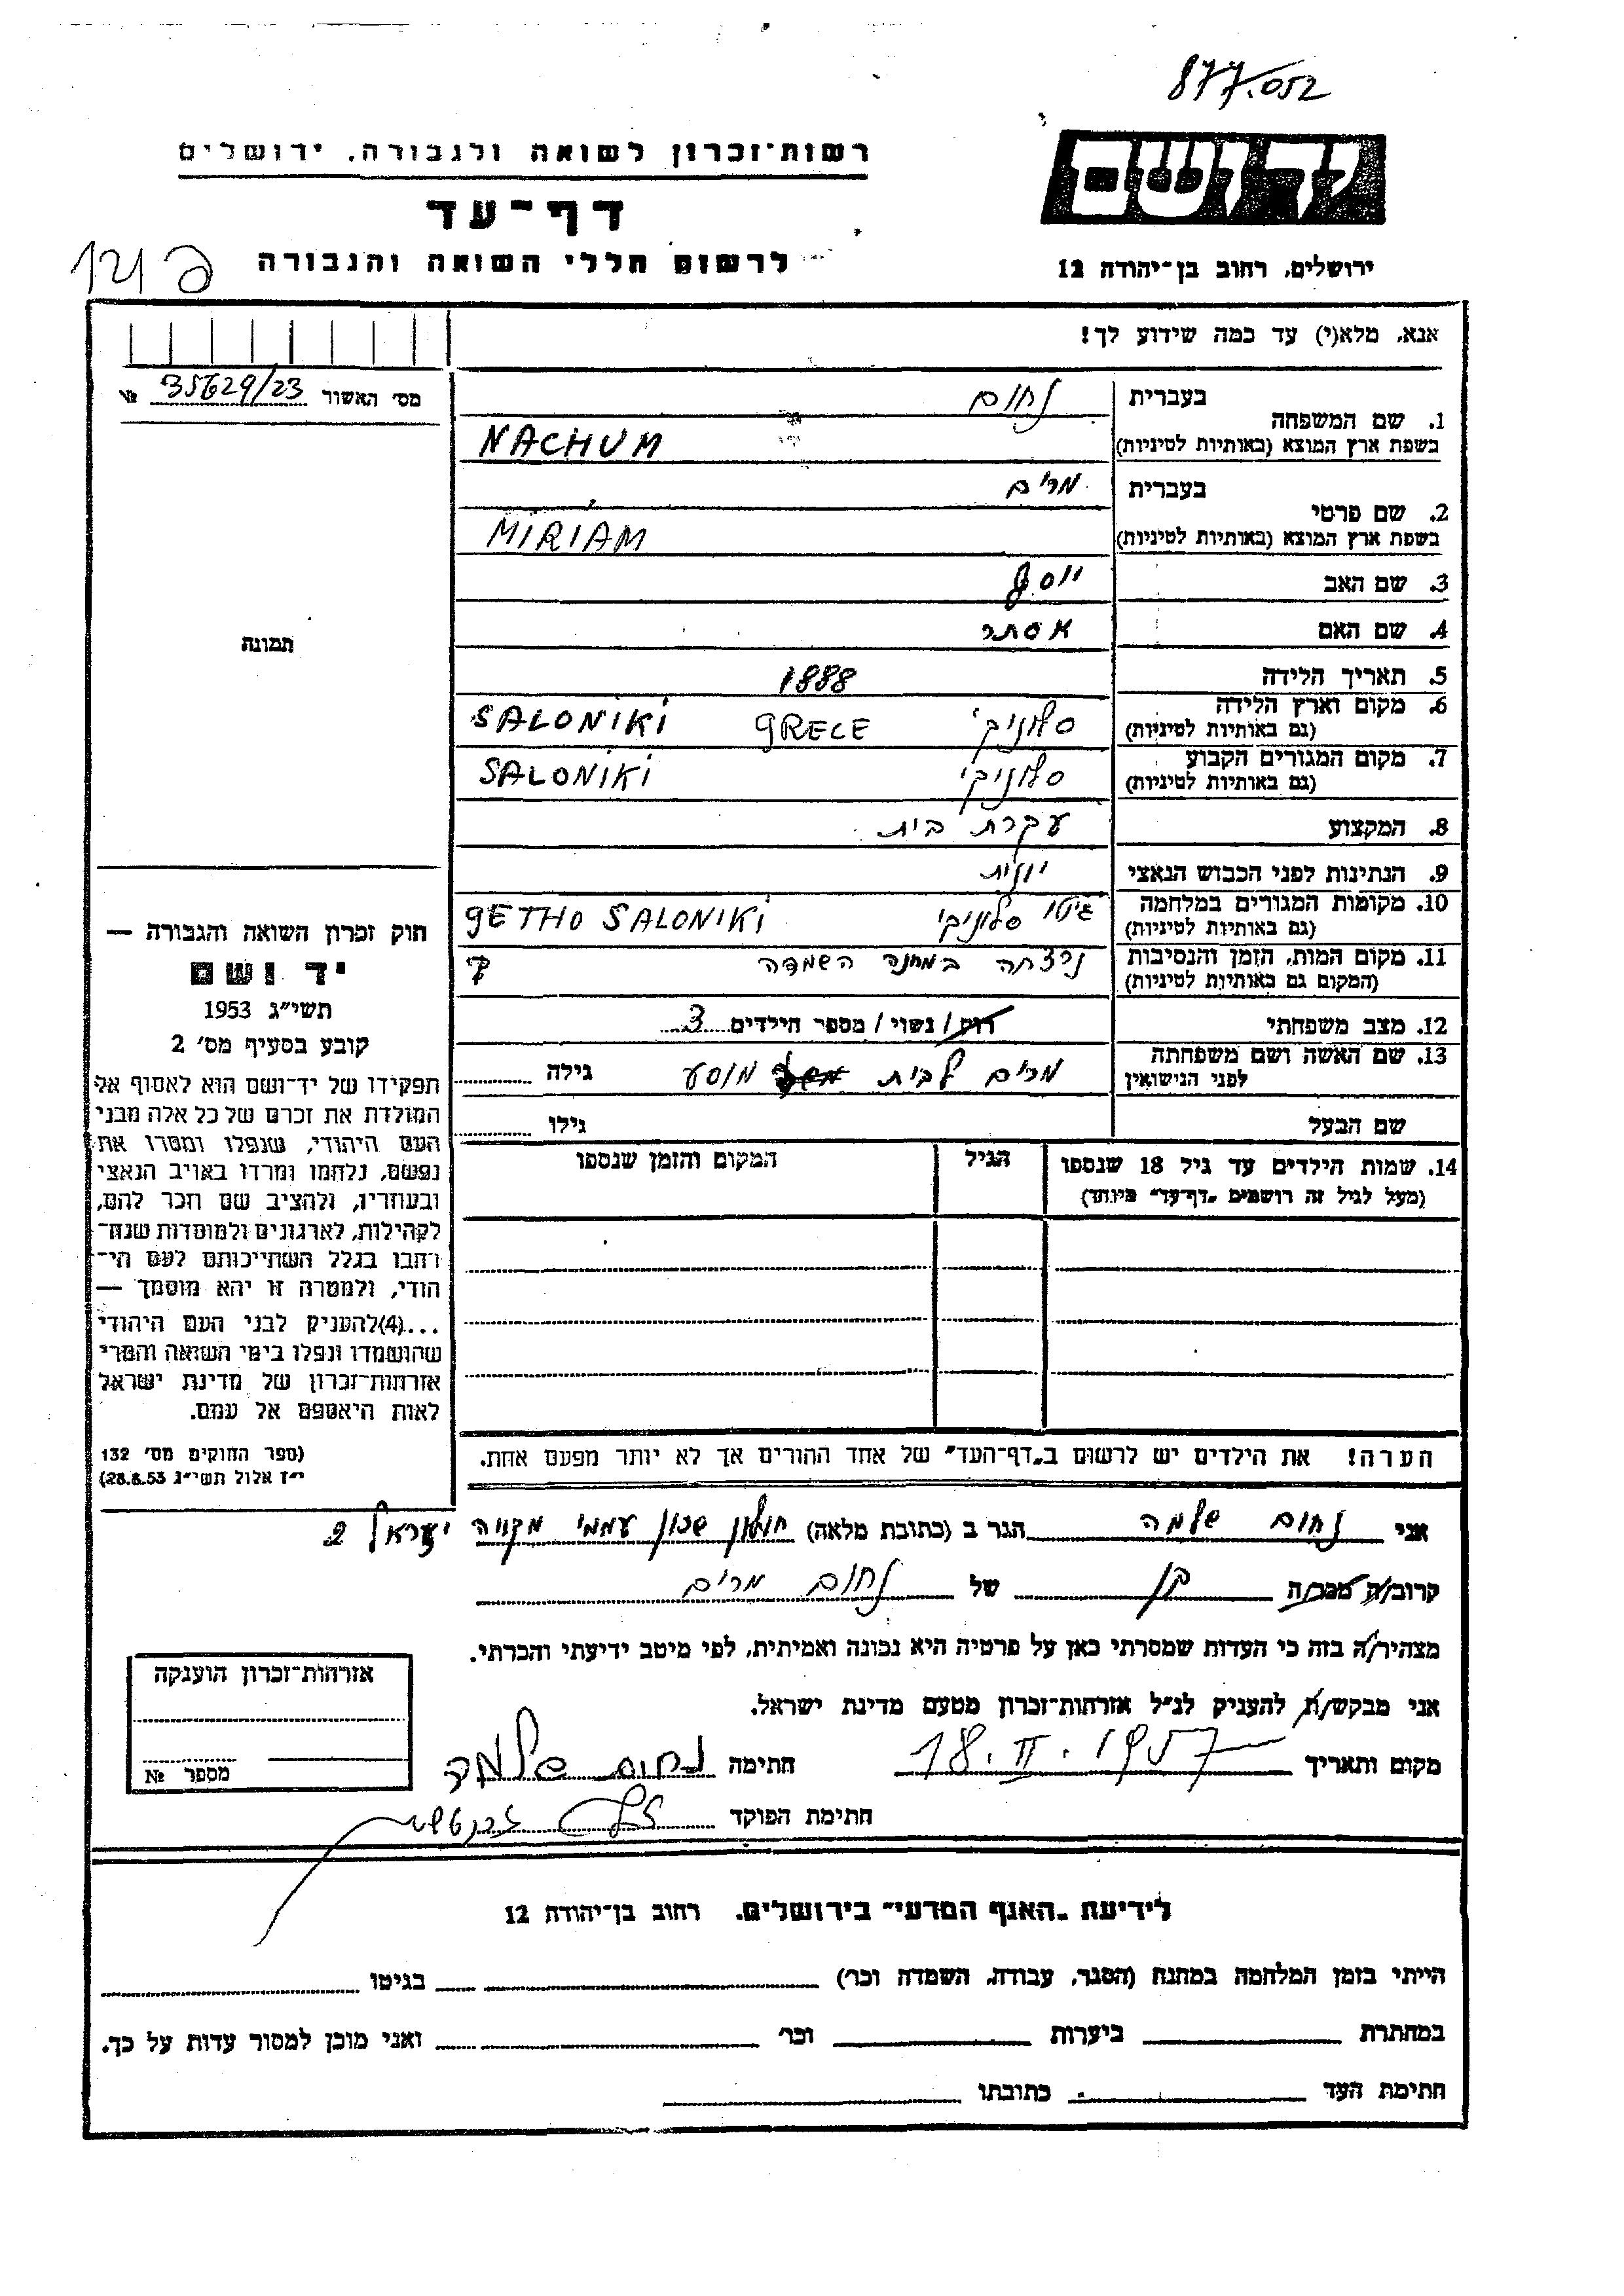 877.052
יד ושם
רשות־זכרון לשואה ולגבורה, ירושלים
דף־עד
לרשום חללי השואה והגבורה
ירושלים, רחוב בן־יהודה 12
אנא, מלא(י) עד כמה שידוע לך!
מס׳ האשור 35629/23 №
בעברית נחום
1. שם המשפחה
בשפת ארץ המוצא (באותיות לטיניות) NACHUM
בעברית מרים
2. שם פרטי
בשפת ארץ המוצא (באותיות לטיניות) MIRIAM
3. שם האב יוסף
4. שם האם אסתר
תמונה
5. תאריך הלידה 1888
6. מקום וארץ הלידה סלוניקי GRECE SALONIKI
(גם באותיות לטיניות)
7. מקום המגורים הקבוע סלוניקי SALONIKI
(גם באותיות לטיניות)
8. המקצוע עקרת בית
9. הנתינות לפני הכבוש הנאצי יונית
10. מקומות המגורים במלחמה גיטו סלוניקי GETHO SALONIKI
(גם באותיות לטיניות)
11. מקום המות, הזמן והנסיבות נרצחה במחנה השמדה
(המקום גם באותיות לטיניות)
12. מצב משפחתי רוק / נשוי / מספר הילדים 3
13. שם האשה ושם משפחתה מרים לבית מוסע גילה
לפני הנישואין
שם הבעל גילו
14. שמות הילדים עד גיל 18 שנספו הגיל המקום והזמן שנספו
(מעל לגיל זה רושמים „דף־עד" מיוחד)
חוק זכרון השואה והגבורה —
יד ושם
תשי״ג 1953
קובע בסעיף מס׳ 2
תפקידו של יד־ושם הוא לאסוף אל
המולדת את זכרם של כל אלה מבני
העם היהודי, שנפלו ומסרו את
נפשם, נלחמו ומרדו באויב הנאצי
ובעוזריו, ולהציב שם וזכר להם,
לקהילות, לארגונים ולמוסדות שנח־
רבו בגלל השתייכותם לעם הי־
הודי, ולמטרה זו יהא מוסמך —
...(4)להעניק לבני העם היהודי
שהושמדו ונפלו בימי השואה והמרי
אזרחות־זכרון של מדינת ישראל
לאות היאספם אל עמם.
(ספר החוקים מס׳ 132
י״ז אלול תשי״ג 28.8.53)
הערה! את הילדים יש לרשום ב„דף־העד" של אחד ההורים אך לא יותר מפעם אחת.
אני נחום שלמה הגר ב (כתובת מלאה) חולון שכון עממי מקווה ישראל 2
קרוב/ה מכר/ה בן של נחום מרים
מצהיר/ה בזה כי העדות שמסרתי כאן על פרטיה היא נכונה ואמיתית, לפי מיטב ידיעתי והכרתי.
אני מבקש/ת להעניק לנ״ל אזרחות־זכרון מטעם מדינת ישראל.
מקום ותאריך 18.II.1957 חתימה נחום שלמה
חתימת הפוקד
אזרחות־זכרון הוענקה
מספר №
לידיעת „האגף המדעי" בירושלים, רחוב בן־יהודה 12
הייתי בזמן המלחמה במחנה (הסגר, עבודה, השמדה וכר׳) בגיטו
במחתרת ביערות וכר׳ ואני מוכן למסור עדות על כך.
חתימת העד כתובתו